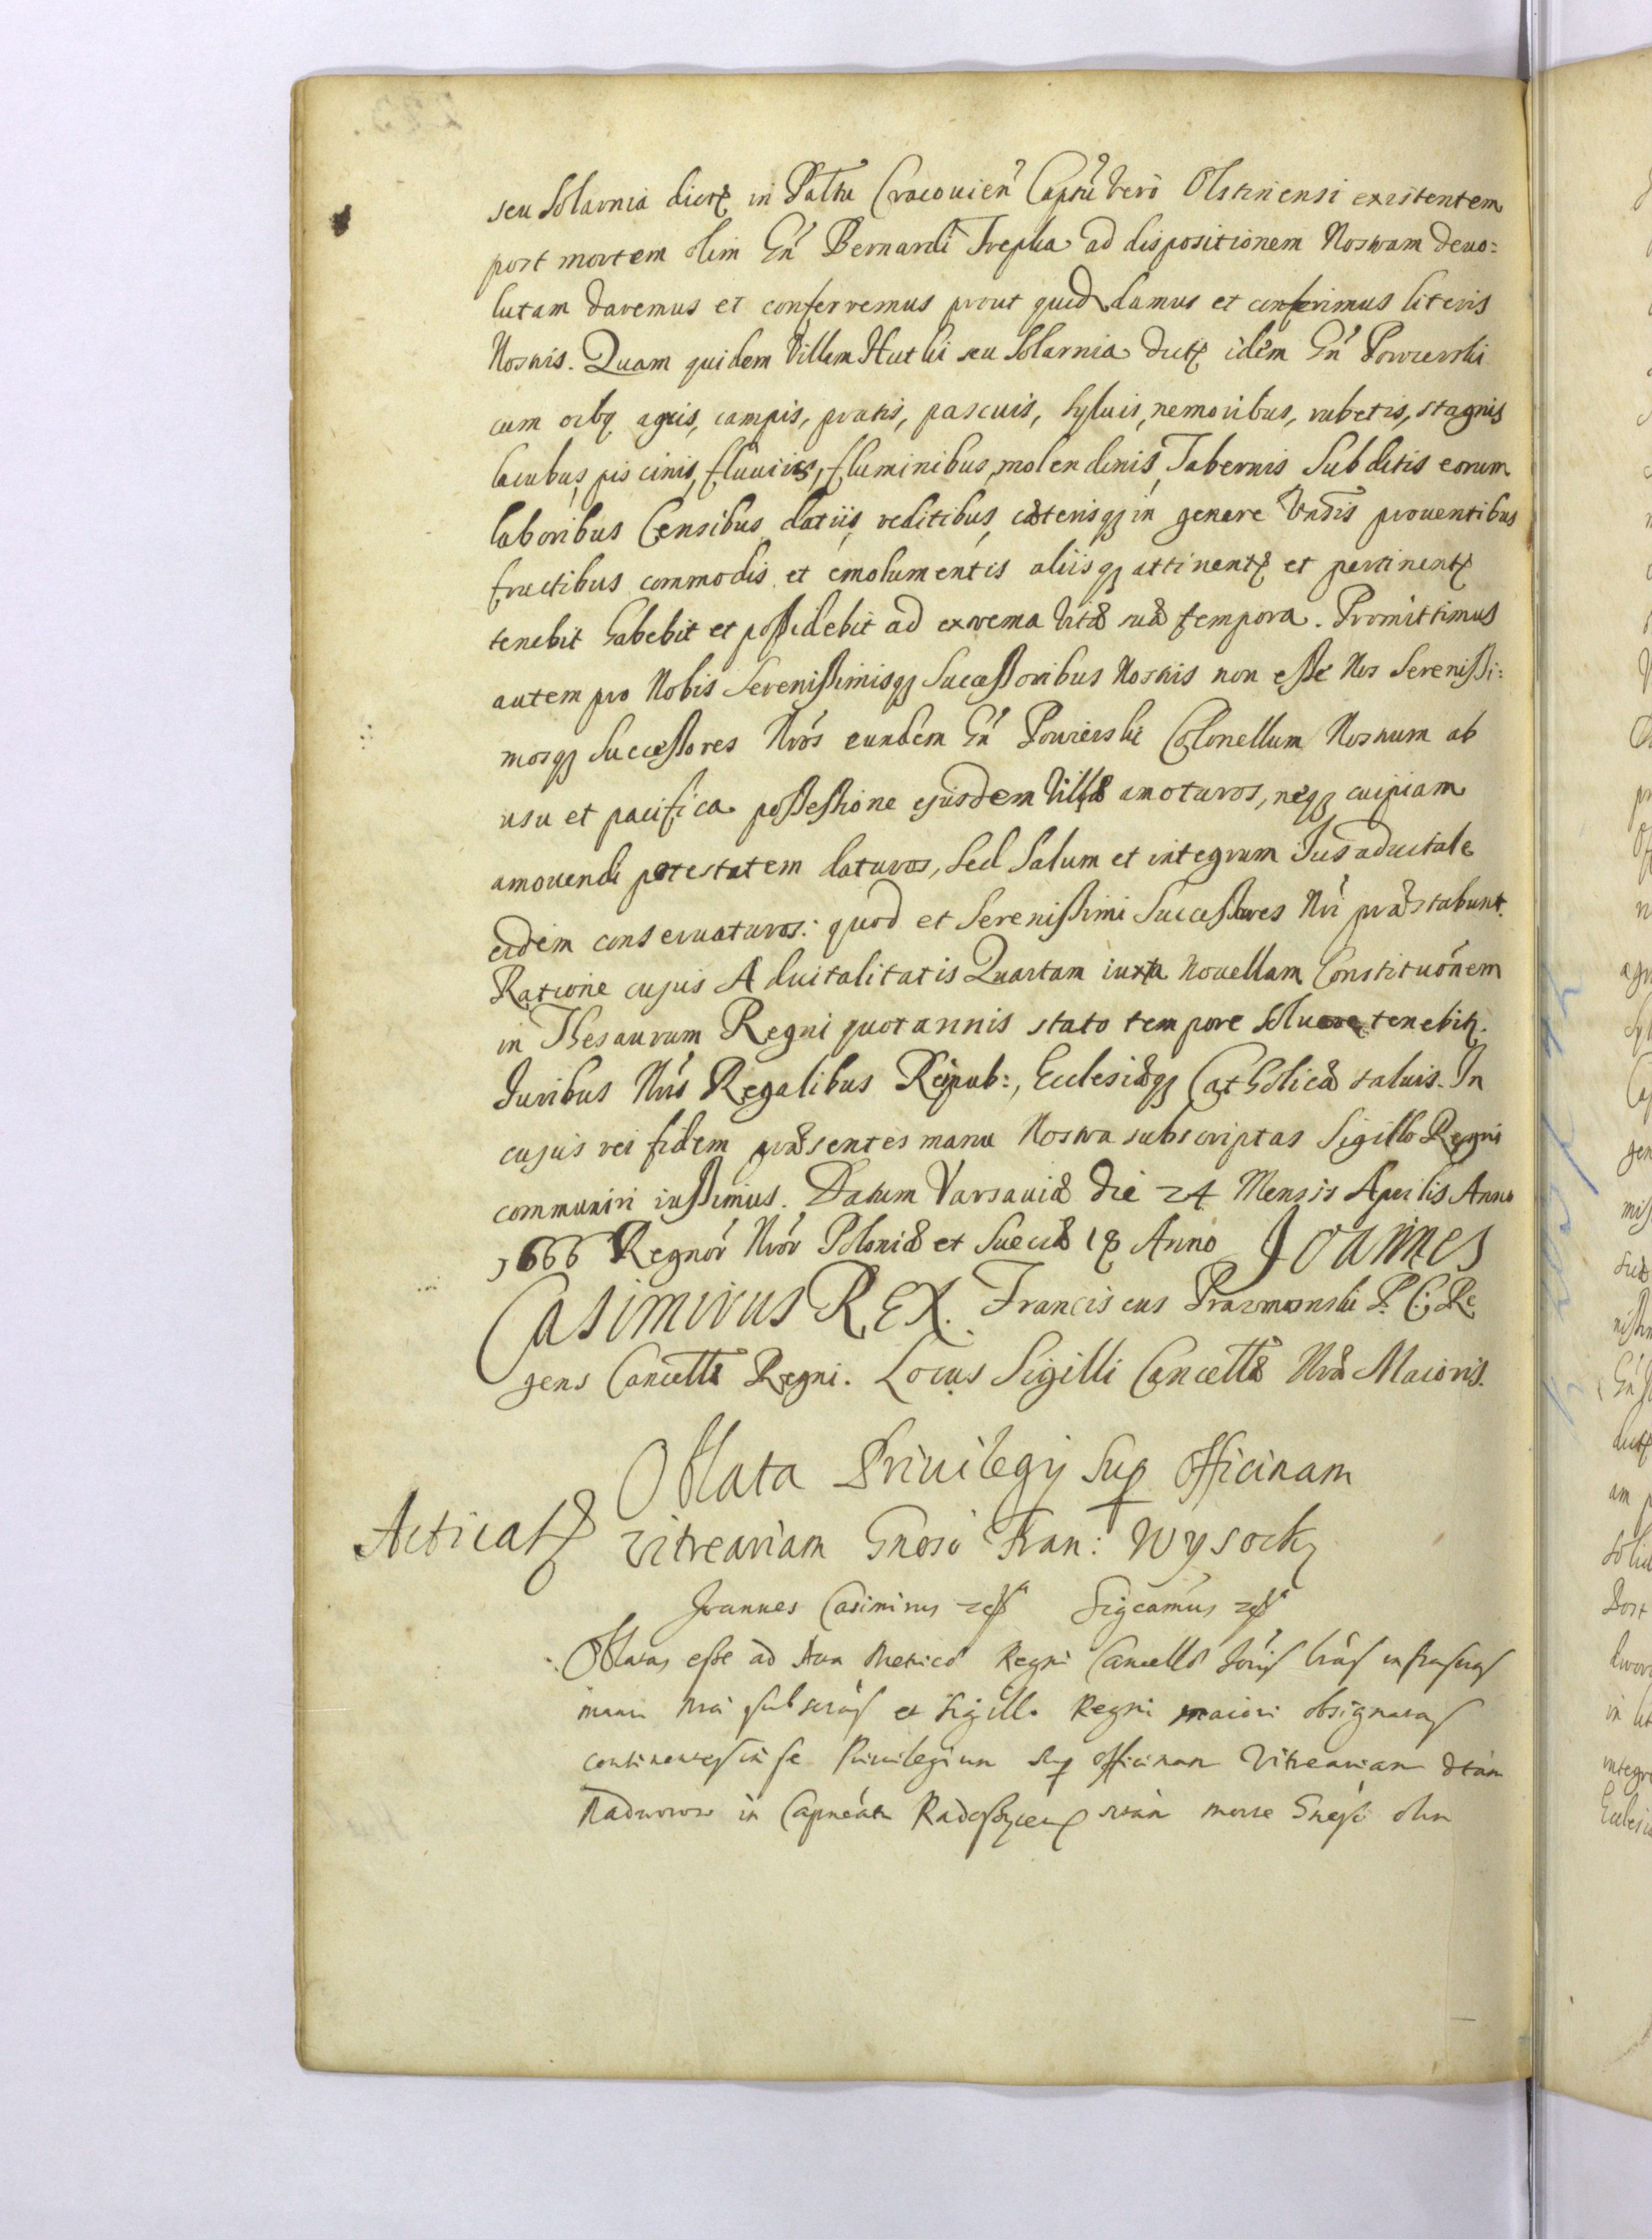 seu Solarnia dictę in Paltu Cracouień Captũ verò Olstinensi existentem
post mortem olim Gń Bernardi Trepka ad dispositionem Nostram deuo=
lutam daremus et conferremus prout quid damus et conferimus literis
Nostris. Quam quidem Villam Hutki seu Solarnia dictę idem Gń Powierski
cum oibq agris, campis, pratis, pascuis, syluis, nemoribus, rubetis, stagnis
lacubus, piscinis, fluuiis, fluminibus, molendinis, Tabernis Subditis eorum
laboribus Censibus, datiis, reditibus, cæterisqȝ in genere Vnsis prouentibus
fructibus commodis et emolumentis aliisqȝ attinentę et pertinentę
tenebit habebit et possidebit ad extrema Vitæ suæ tempora. Promittimus
autem pro Nobis Serenissimisqȝ Successoribus Nostris non esse Nos Serenissi=
mosqȝ Successores Nrós eundem Gń Powierski Colonellum Nostrum ab
usu et pacifica possessione ejusdem Villæ amoturos, neqȝ cuipiam
amouendi potestatem daturos, Sed Saluum et integrum Jus aduitale
eidem conseruaturos: quod et Serenissimi Successores Nri præstabunt.
Ratione cujus Aduitalitatis Quartam iuxta Nouellam Constituónem
in Thesaurum Regni quotannis stato tempore Soluere tenebit.
Juribus Nris Regalibus Reipub:, Ecclesiæqȝ Catholicæ saluis. In
cujus rei fidem præsentes manu Nostra subscriptas Sigillo Regni
communiri iussimus. Datum Varsauiæ die 24 Mensis Aprilis Anno
1666 Regnoŕ Nroŕ Poloniæ et Sueciæ 18 Anno Joannes
Casimirus REX. Franciscus Prazmowski P. C: Re
gens Cancellæ Regni. Locus Sigilli Cancellæ Nræ Maioris.
Oblata Priuilegij Sup officinam
Acticatę vitreariam Gnoso Fran: Wysocky
Joannes Casimirus Sigcamus
Oblatas esse ad Acta Metricæ Regni Cancellæ
manu Nra subscras et sigillo Regni maiori obsignatas
continentes in se Priuilegium Sup officinam Vitreariam dtam
in Captneatu morte olim